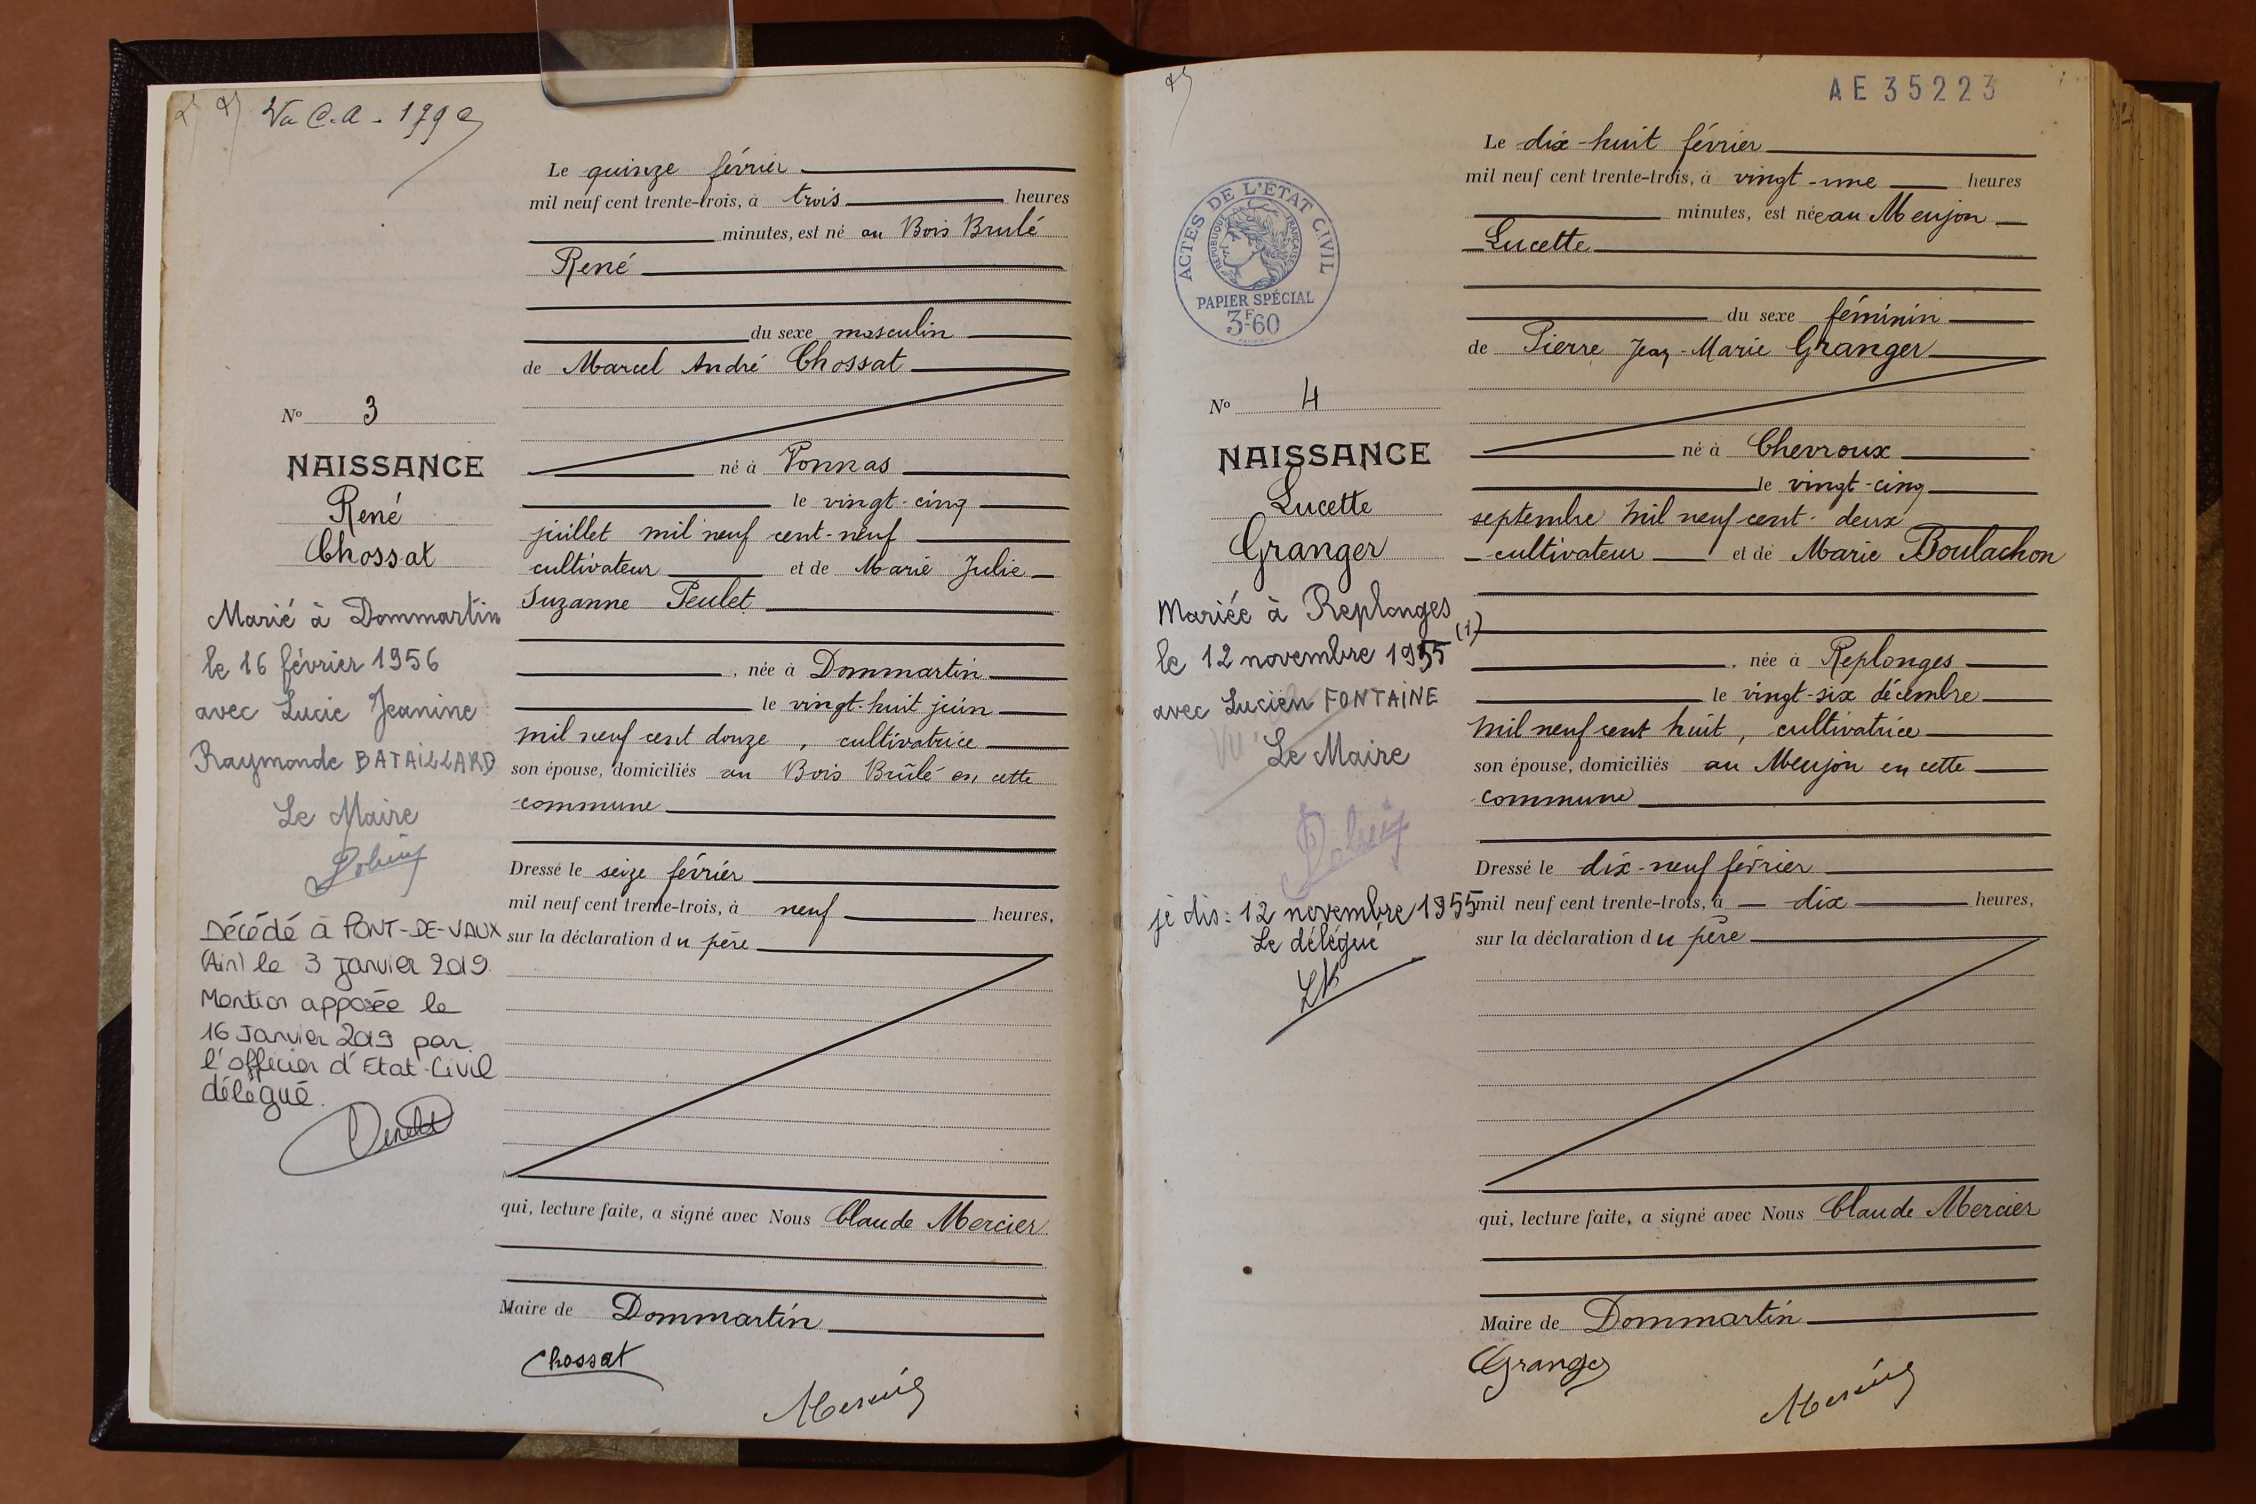 Le quinze février
mil neuf cent trente-trois, à trois heures
minutes, est né au Bois Brulé
René
du sexe masculin
de Marcel André Chossat
né à Vonnas
le vingt-cinq
juillet mil neuf cent-neuf
cultivateur et de Marie Julie
Suzanne Peulet
, née à Dommartin
le vingt-huit juin
mil neuf cent douze, cultivatrice
son épouse, domiciliés au Bois Brûlé en cette
commune
Dressé le seize février
mil neuf cent trente-trois, à neuf heures,
sur la déclaration du père
qui, lecture faite, a signé avec Nous Claude Mercier
Maire de Dommartin
Chossat
Mercier
No 3
NAISSANCE
René
Chossat
Marié à Dommartin
le 16 février 1956
avec Lucie Jeanine
Raymonde BATAILLARD
Le Maire
Décédé à PONT-DE-VAUX
(Ain) le 3 Janvier 2019
Mention apposée le
16 Janvier 2019 par
l'officier d'Etat-Civil
délégué.
AE 35223
ACTES DE L'ETAT CIVIL
REPUBLIQUE FRANCAISE
PAPIER SPÉCIAL
3F60
Le dix-huit février
mil neuf cent trente-trois, à vingt-une heures
minutes, est née au Meujon
Lucette
du sexe féminin
de Pierre Jean-Marie Granger
né à Chevroux
le vingt-cinq
septembre mil neuf cent-deux
cultivateur et de Marie Boulachon
, née à Replonges
le vingt-six décembre
mil neuf cent huit, cultivatrice
son épouse, domiciliés au Meujon en cette
commune
Dressé le dix-neuf février
mil neuf cent trente-trois, à dix heures,
sur la déclaration du père
qui, lecture faite, a signé avec Nous Claude Mercier
Maire de Dommartin
Granger
Mercier
No 4
NAISSANCE
Lucette
Granger
Mariée à Replonges
le 12 novembre 1955 (1)
avec Lucien FONTAINE
Le Maire
je dis: 12 novembre 1955
Le délégué